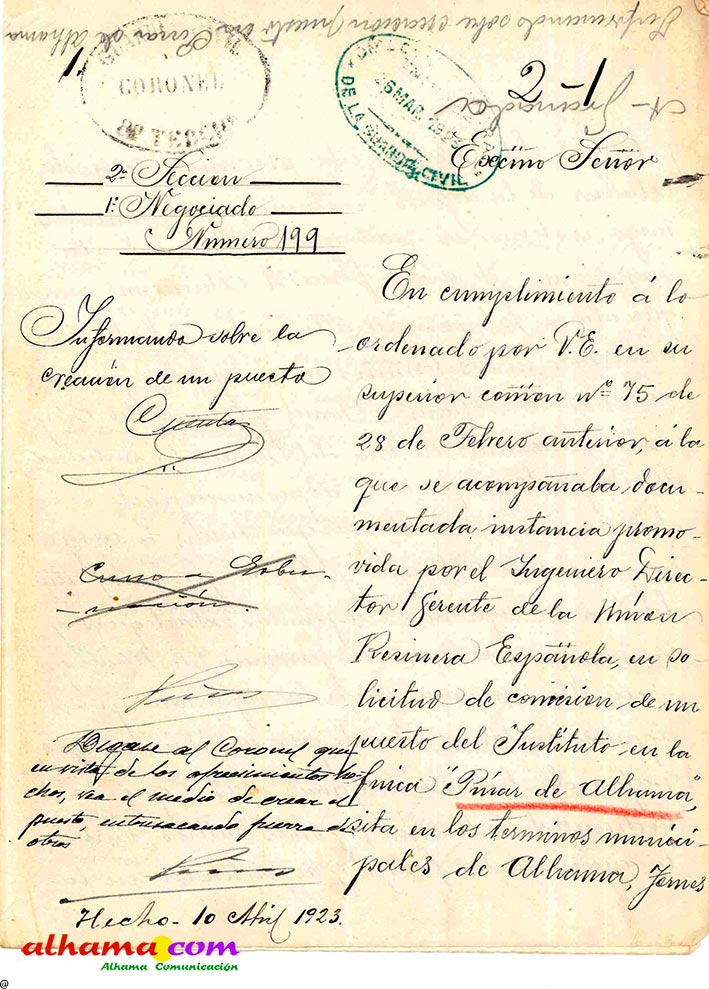 Informando sobre creación puesto en Pinar de Alhama
1.
CORONEL
DE LA GUARDIA CIVIL
2-1
Granada
Excmo Señor
2ª Seccion
1er Negociado
Numero 199
Informando sobre la
creación de un puesto
En cumplimiento á lo
ordenado por V.E. en su
superior comon nº 75 de
28 de Febrero anterior, á la
que se acompañaba docu-
mentada instancia promo-
vida por el Ingeniero Direc-
tor Gerente de la Unión
Resinera Española, en so-
licitud de concesion de un
puesto del Instituto en la
finca "Pinar de Alhama",
sita en los terminos munici-
pales de Alhama, Jernes
Curso a Gober-
nación.
Digase al Coronel que
en vista de los ofrecimientos he-
chos, vea el medio de crear el
puesto, entresacando fuerza de
otros
Hecho - 10 Abril 1923.
alhama.com
Alhama Comunicación
@